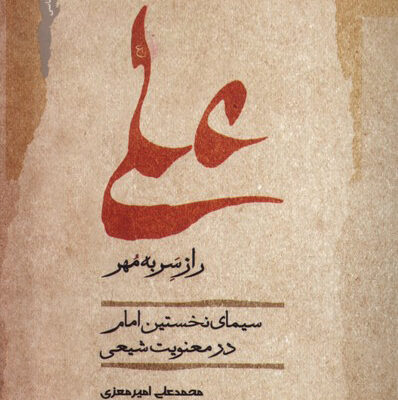 علی
راز سَر به مُهر
سیمای نخستین امام
در معنویت شیعی
محمدعلی امیرمعزی